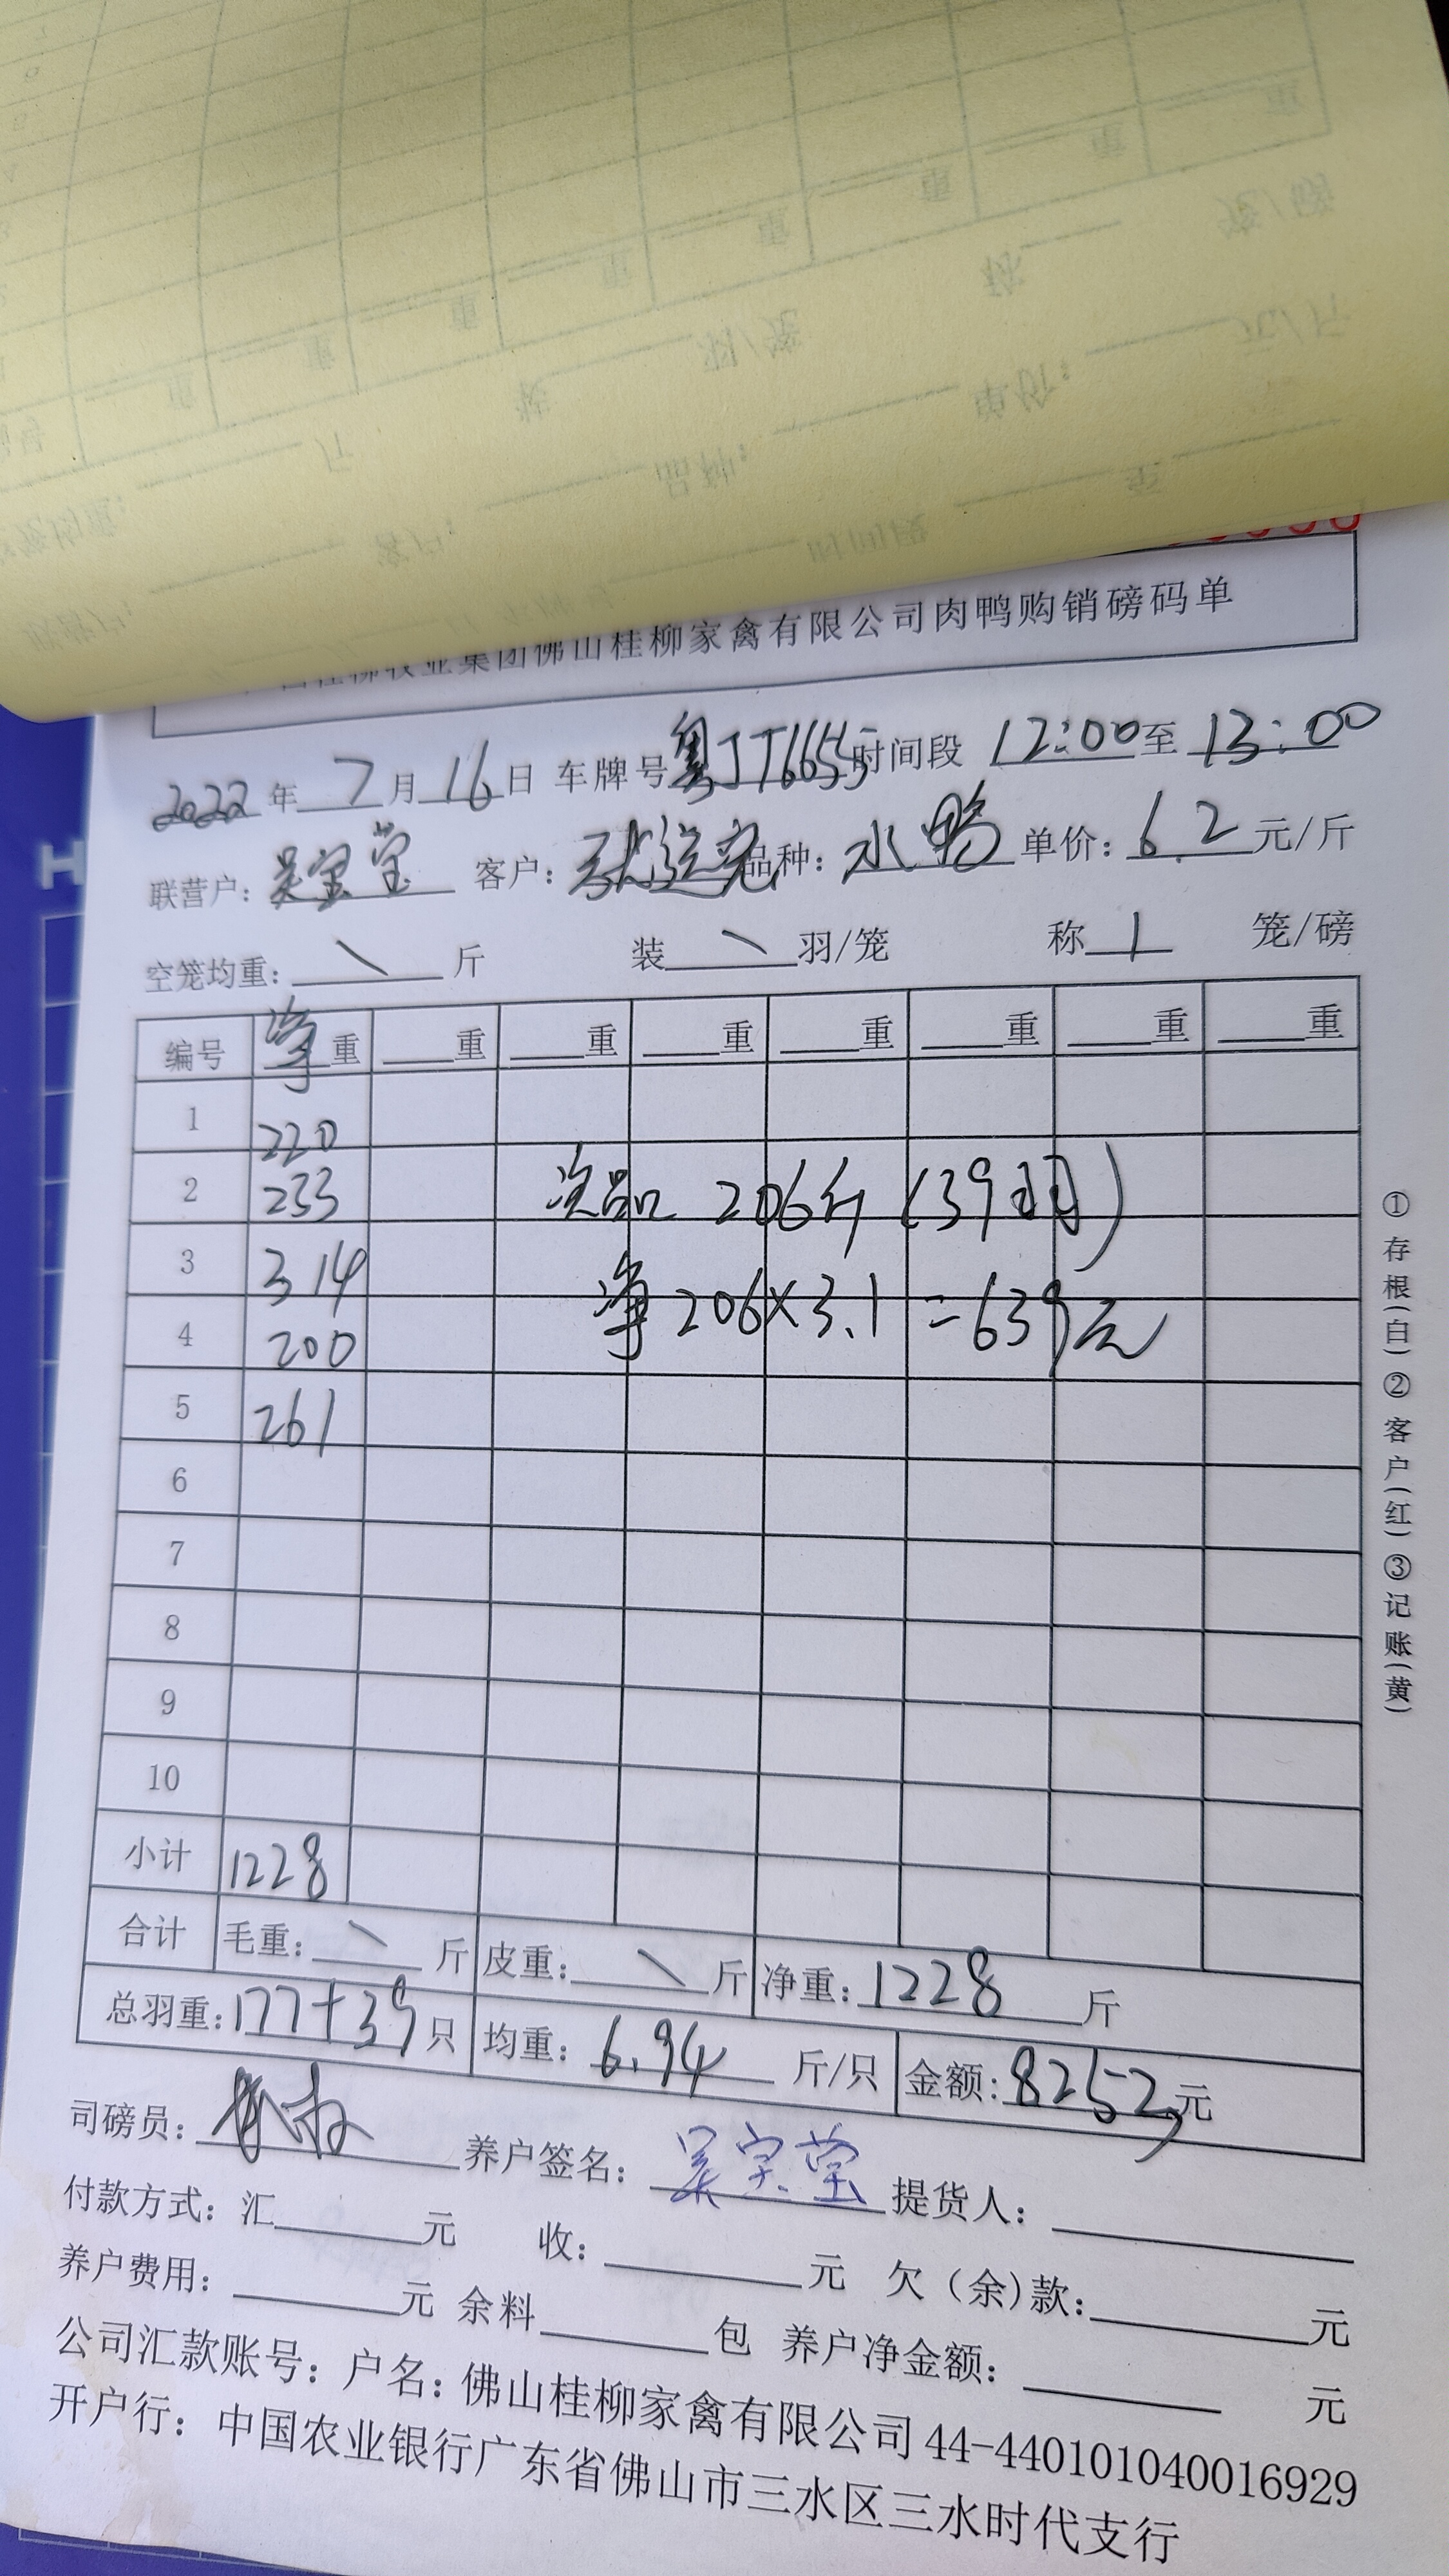 牧业集团佛山桂柳家禽有限公司肉鸭购销磅码单
2022年7月16日 车牌号粤JT6655时间段 12:00至13:00
联营户: 吴宝莹 客户: 品种: 水鸭 单价: 6.2元/斤
空笼均重: \ 斤 装\羽/笼 称1 笼/磅
编号 净重 重 重 重 重 重 重 重
1 220
2 233 次品 206斤(39羽)
3 314 净206×3.1=639元
4 200
5 261
6
7
8
9
10
小计 1228
合计 毛重: \ 斤 皮重: \ 斤 净重: 1228 斤
总羽重: 177+39只 均重: 6.94 斤/只 金额: 8252元
司磅员: 养户签名: 吴宝莹 提货人:
付款方式: 汇 元 收: 元 欠(余)款: 元
养户费用: 元 余料 包 养户净金额: 元
公司汇款账号: 户名: 佛山桂柳家禽有限公司 44-440101040016929
开户行: 中国农业银行广东省佛山市三水区三水时代支行
①存根(白)②客户(红)③记账(黄)